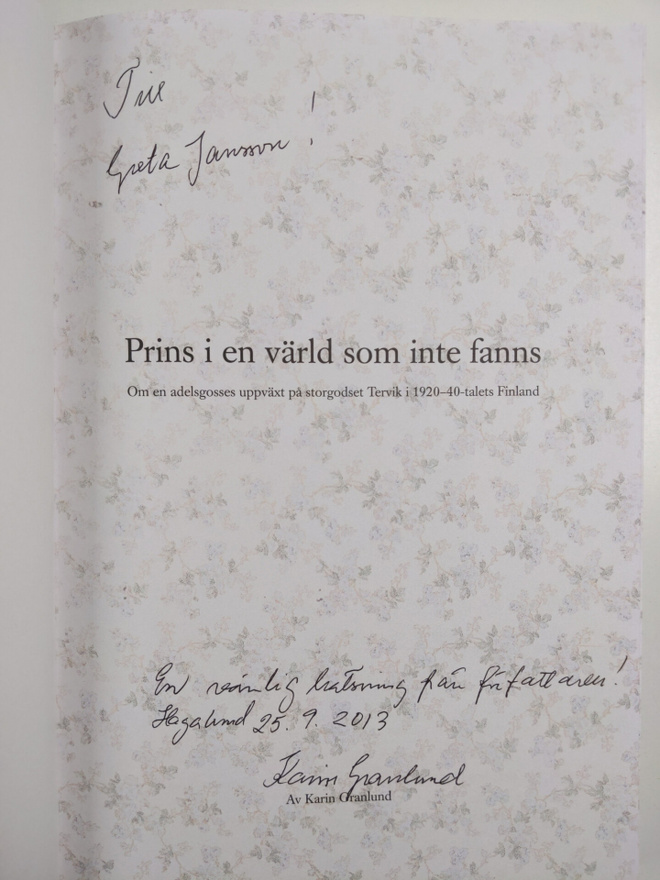 Till
Greta Jansson!
Prins i en värld som inte fanns
Om en adelsgosses uppväxt på storgodset Tervik i 1920–40-talets Finland
En vänlig hälsning från författaren!
Hagalund 25. 9. 2013
Karin Granlund
Av Karin Granlund